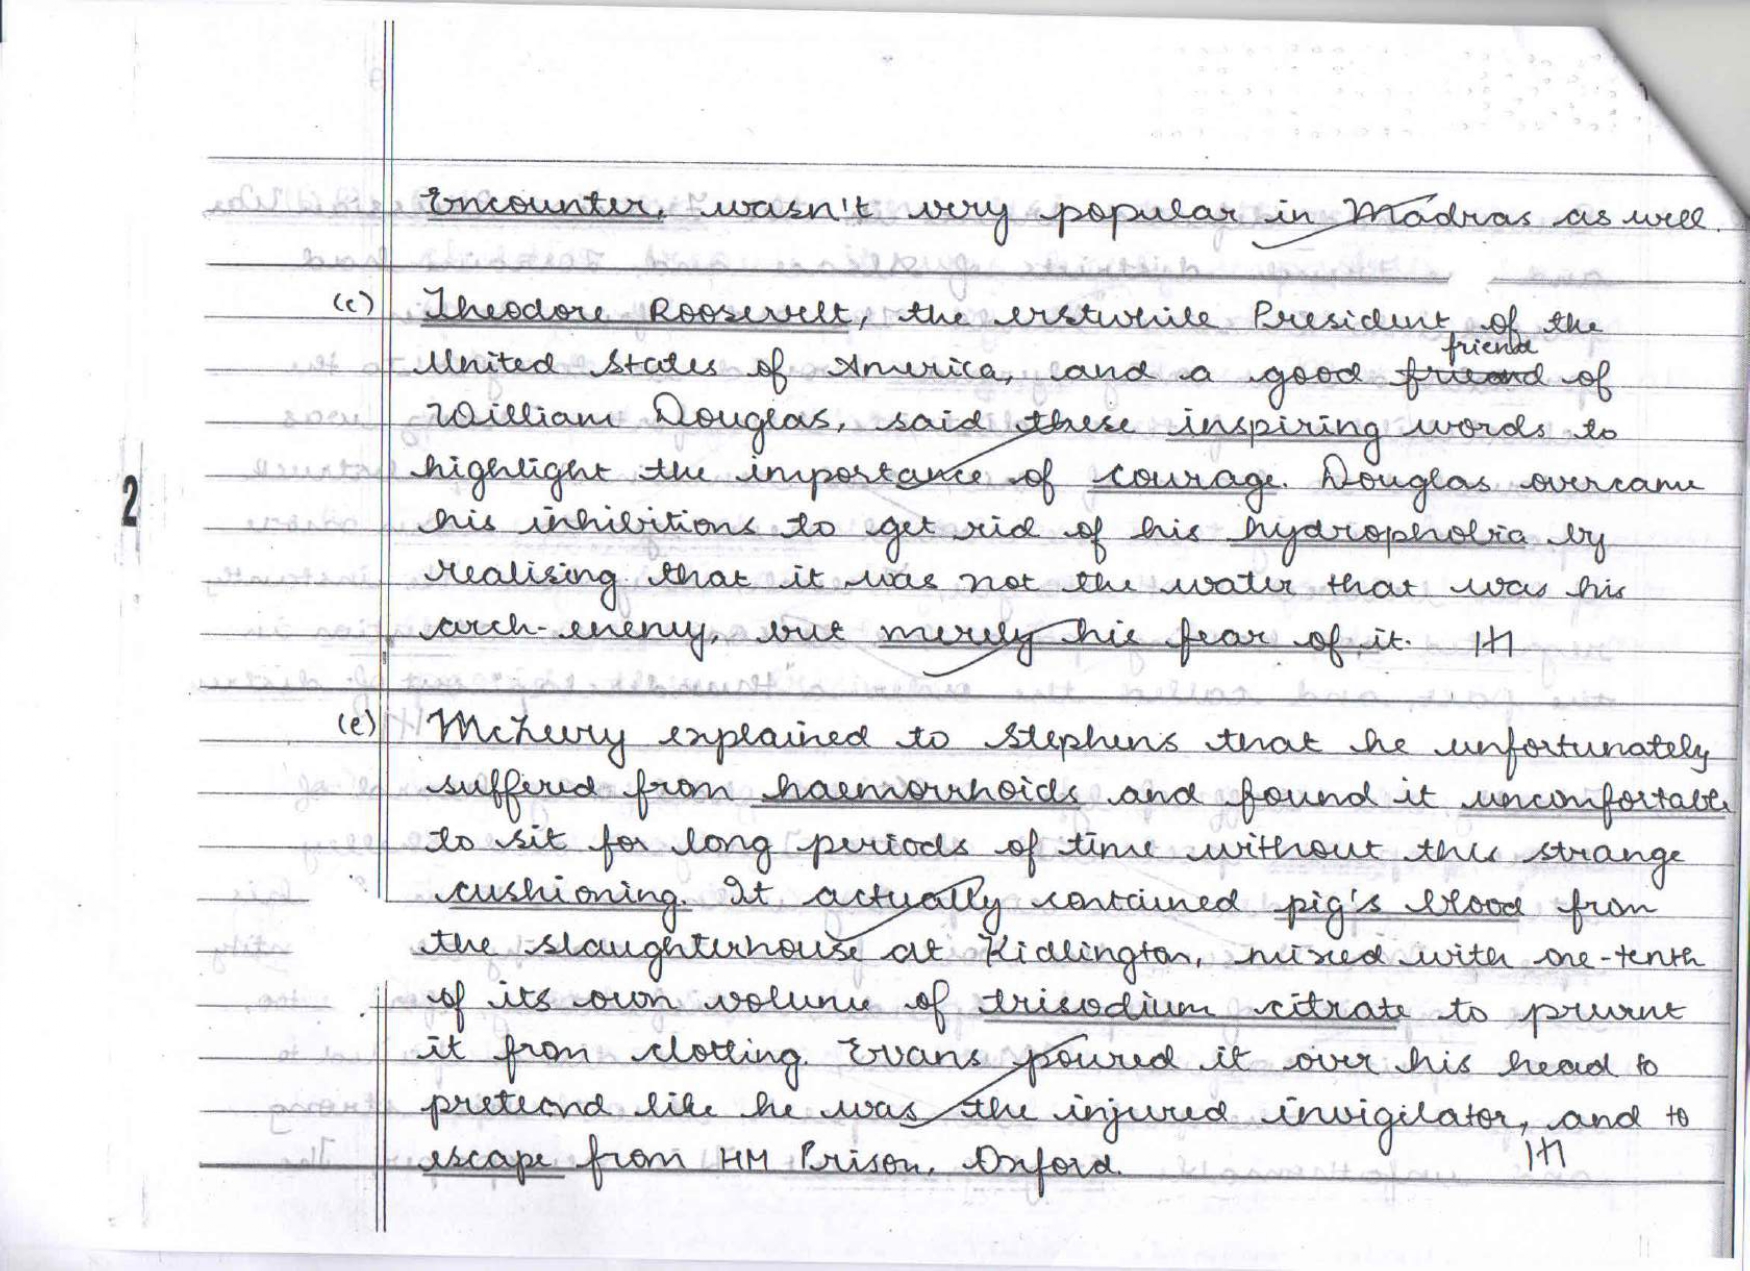 Encounter, wasn't very popular in Madras as well.
(c) Theodore Roosevelt, the erstwhile President of the
friend
United States of America, and a good friend of
William Douglas, said these inspiring words to
highlight the importance of courage. Douglas overcame
2
his inhibitions to get rid of his hydropholia by
realising that it was not the water that was his
arch-enemy, but merely his fear of it.
(e) McLeery explained to Stephens that he unfortunately
suffered from haemorrhoids and found it uncomfortable
to sit for long periods of time without this strange
cushioning. It actually contained pig's blood from
the slaughterhouse at Kidlington, mixed with one-tenth
of its own volume of trisodium citrate to prevent
it from clotting. Evans poured it over his head to
pretend like he was the injured invigilator, and to
escape from HM Prison, Oxford.